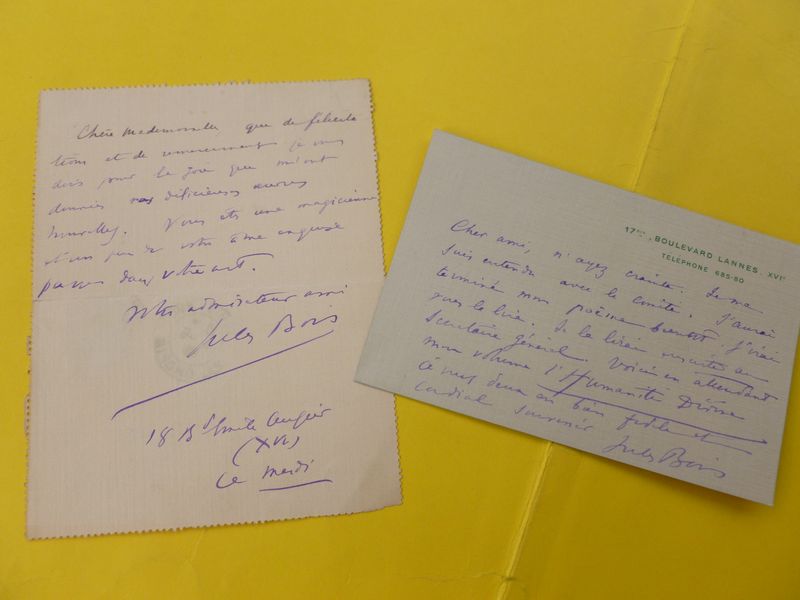 Chère Mademoiselle que de félicita
tions et de remerciements je vous
dois pour la joie que m'ont
données vos délicieuses œuvres
nouvelles. Vous êtes une magicienne
et un peu de votre âme exquise
passe dans votre art.
Votre admirateur ami
Jules Bois
18 Bd Emile Augier
(XVI)
Ce mardi
17BIS, BOULEVARD LANNES, XVIE
TÉLÉPHONE 685-80
Cher ami, n'ayez crainte. Je me
suis entendu avec le comité. J'aurai
terminé mon poème bientôt. J'irai
vous le lire. Je le lirai ensuite au
Secrétaire général. Voici en attendant
mon volume l'Humanité Divine
À vous deux en bien fidèle et
cordial souvenir Jules Bois